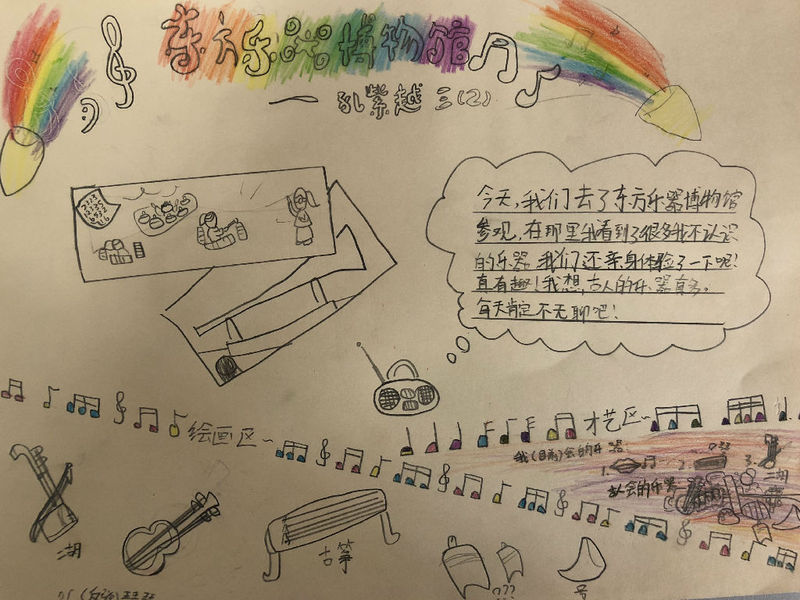 东方乐器博物馆
一 孔紫越 三(2)
今天,我们去了东方乐器博物馆
参观,在那里我看到了很多我不认识
的乐器,我们还亲身体验了一下呢!
真有趣!我想,古人的乐器真多。
每天肯定不无聊吧!
绘画区~
才艺区~
我(目前)会的乐器
1. 2. ??? 3. 二胡
会的乐器
二胡
古筝
???
号